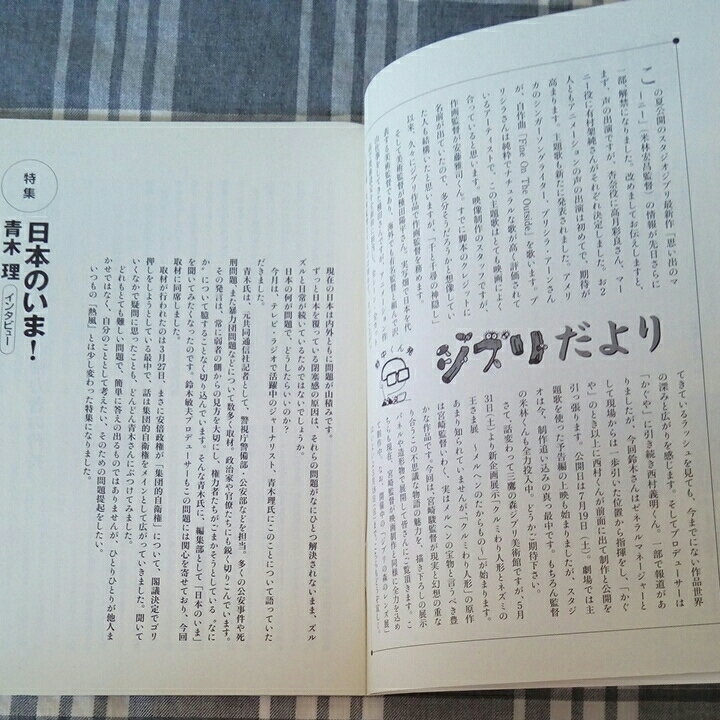 この夏公開のスタジオジブリ最新作「思い出のマ
ーニー」(米林宏昌監督)の情報が先日さらに
一部、解禁になりました。改めましてお伝えしますと、
まず、声の出演ですが、杏奈役に高月彩良さん、マー
ニー役に有村架純さんがそれぞれ決定しました。お
人ともアニメーションの声の出演は初めてで、期待が
高まります。主題歌も新たに発表されました。アメリ
カのシンガーソングライター、プリシラ・アーンさん
が、自作曲「Fine On The Outside」を歌います。プ
リシラさんは純粋でナチュラルな歌が高く評価されて
いるアーティストで、この主題歌はとても映画によく
合っていると思います。映像制作のスタッフですが、
作画監督が安藤雅司くん。すでに脚本のクレジットに
名前が出ていたので、多分そうだろうと想像してい
た人も結構いたと思いますが、「千と千尋の神隠し」
以来、久々にジブリ作品で作画監督を務めます。
そして美術監督が種田陽平さん。実写畑で日本を代
表する美術監督であり、海外でも有名監督と組んで
ジブリだより
てきているラッシュを見ても、今までにない作品世界
の深みと広がりを感じます。そしてプロデューサーは
「かぐや」に引き続き西村義明くん。一部で報道があ
りましたが、今回鈴木さんはゼネラルマネージャーと
して現場からは一歩引いた位置から指揮をし、「かぐ
や」のとき以上に西村くんが前面に出て制作と公開を
引っ張ります。公開日は7月19日(土)。劇場では主
題歌を使った予告編の上映も始まりましたが、スタジ
オは今、制作追い込みの真っ最中。もちろん監督
の米林くんも全力投入中。どうかご期待下さい。
さて、話変わって三鷹の森ジブリ美術館ですが、5月
31日(土)より新企画展示「クルミわり人形とネズミの
王さま展 〜メルヘンのたからもの〜」が始まります。
あまり知られていませんが、「クルミわり人形」の原作
は宮崎駿監督いわく、実はメルヘンの宝物と言うべき豊
かな作品です。今回は宮崎駿監督が現実と幻想の重な
り合うこの不思議な物語の魅力を、描き下ろしの展示
パネルや造形物で展開して皆さんにご覧頂きます。
特集
日本のいま!
青木 理 インタビュー
現在の日本は内外ともに問題が山積みです。
ずっと日本を覆っている閉塞感の原因は、それらの問題がなにひとつ解決されないまま、ズル
ズルと日常が続いているためではないでしょうか。
日本の何が問題で、どうしたらいいのか?
今月は、テレビ・ラジオで活躍中のジャーナリスト、青木理氏にこのことについて語っていた
だきました。
青木氏は、元共同通信社記者として、警視庁警備部、公安部などを担当。多くの公安事件や死
刑問題、また暴力団問題などについて数多く取材。政治家や官僚たちにも鋭く切りこんでいます。
その発言は、常に弱者の側からの見方を大切にし、権力者たちがごまかそうとしている〝なに
か〟について臆することなく切り込んでいます。そんな青木氏に、編集部として「日本のいま」
を聞いてみたくなったのです。鈴木敏夫プロデューサーもこの問題には関心を寄せており、今回
取材に同席しました。
取材が行われたのは3月27日、まさに安倍政権が「集団的自衛権」について、閣議決定でゴリ
押しをしようとしている最中で、話は集団的自衛権をメインとして広がっていきました。聞いて
いくなかで疑問に思ったことも、どんどん青木さんにぶつけてみました。
どれもとても難しい問題で、簡単に答えの出るものではありませんが、ひとりひとりが他人ま
かせではなく、自分のこととして考えたい、そのための問題提起をしたい。
いつもの「熱風」とは少し変わった特集になりました。